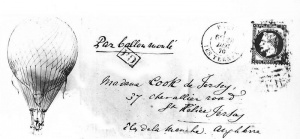 Par Ballon monté
PD
Madame Cook de Jersey
57 Chevallier road
St Hélier Jersey
Iles de la Manche Angleterre